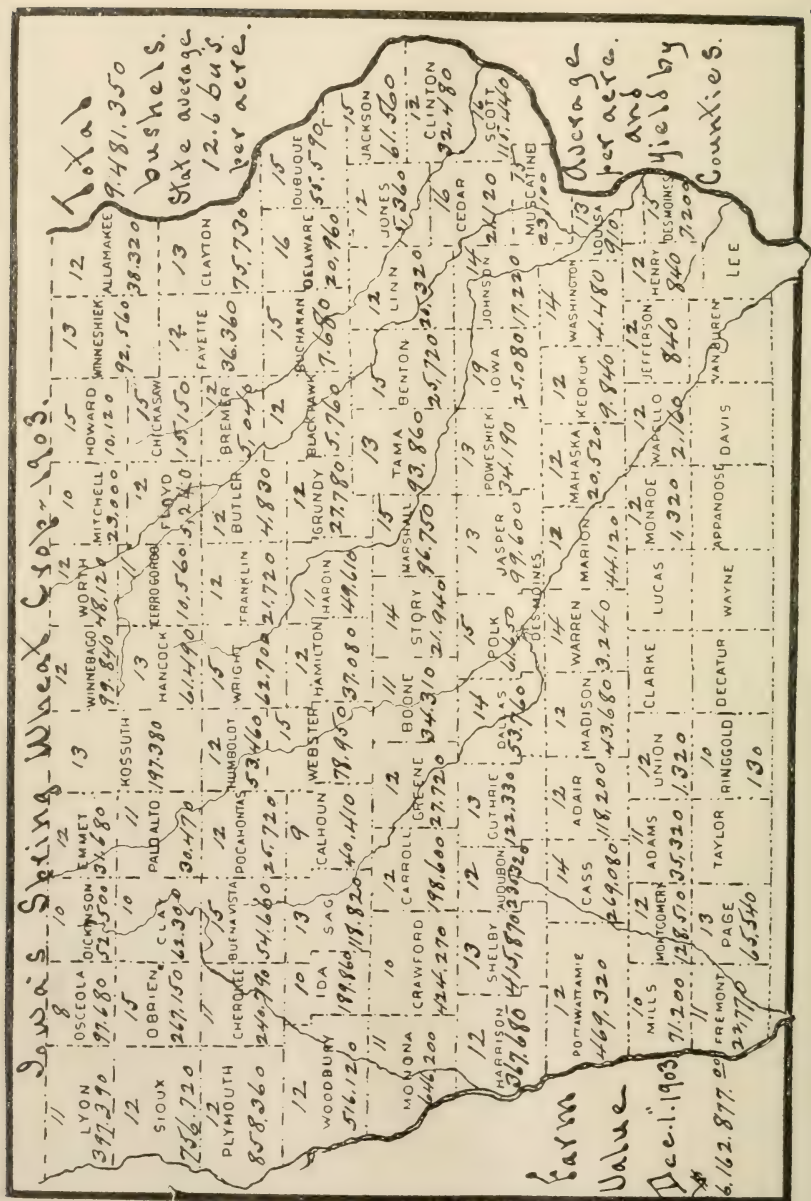 Iowa's Spring Wheat Crop-1903.
Total
9.481.350
bushels.
State average
12.6 bus.
per acre.
11
LYON
397.390
8
OSCEOLA
97.680
10
DICKINSON
52.500
12
EMMET
31.680
13
KOSSUTH
197.380
12
WINNEBAGO
99.840
12
WORTH
48.120
10
MITCHELL
23.000
15
HOWARD
10.120
13
WINNESHIEK
92.560
12
ALLAMAKEE
38.320
12
SIOUX
756.720
15
OBRIEN
267.150
10
CLAY
62.300
11
PALO ALTO
30.470
13
HANCOCK
61.490
11
CERROGORDO
10,560
12
FLOYD
5,240
15
CHICKASAW
15,150
12
FAYETTE
36.360
13
CLAYTON
75,730
12
PLYMOUTH
858.360
17
CHEROKEE
240.790
15
BUENAVISTA
54.660
12
POCAHONTAS
25.720
12
HUMBOLDT
53.460
15
WRIGHT
62.700
12
FRANKLIN
21.720
12
BUTLER
4.830
12
BREMER
5.040
12
WOODBURY
516.120
10
IDA
189.860
13
SAC
118.820
9
CALHOUN
40.410
15
WEBSTER
78.950
12
HAMILTON
37.080
11
HARDIN
49.610
12
GRUNDY
27.780
12
BLACKHAWK
5.760
15
BUCHANAN
7.680
16
DELAWARE
20,960
15
DUBUQUE
55.590
11
MONONA
646.200
10
CRAWFORD
424.270
12
CARROLL
198.600
12
GREENE
27.720
11
BOONE
34.310
14
STORY
21.940
15
MARSHALL
96.750
13
TAMA
93.860
15
BENTON
25.720
12
LINN
20,320
12
JONES
5.360
15
JACKSON
61.560
12
CLINTON
32.480
12
HARRISON
367.680
13
SHELBY
415,870
12
AUDUBON
230,320
13
GUTHRIE
122,330
14
DALLAS
53.760
15
POLK
61.650
DESMOINES
13
JASPER
99.600
13
POWESHIEK
34.190
19
IOWA
25.080
14
JOHNSON
17.220
16
CEDAR
21,120
16
SCOTT
115.440
15
MUSCATINE
23,100
12
POTTAWATTAMIE
469.320
14
CASS
269.080
12
ADAIR
118,200
12
MADISON
43.680
14
WARREN
3.240
12
MARION
44.120
12
MAHASKA
20,520
12
KEOKUK
9.840
14
WASHINGTON
4.480
13
LOUISA
910
10
MILLS
71.200
12
MONTGOMERY
128.510
11
ADAMS
35,320
12
UNION
1.320
CLARKE
LUCAS
12
MONROE
1,320
12
WAPELLO
2,160
12
JEFFERSON
840
12
HENRY
840
13
DESMOINES
7.200
11
FREMONT
22,770
13
PAGE
65,540
TAYLOR
10
RINGGOLD
130
DECATUR
WAYNE
APPANOOSE
DAVIS
VANBUREN
LEE
Farm
Value
Dec.1.1903
$
6,162.877.00
Average
per acre.
and
Yield by
Counties.